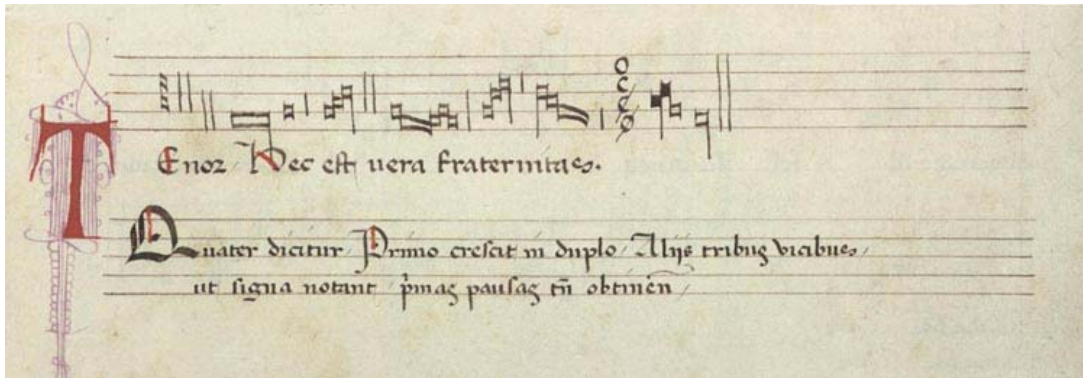 Tenor Hec est vera fraternitas.
Quater dicitur / Primo crescit in duplo / Alijs tribus vicibus /
ut signa notant / pͥmas pausas tn̄ obtinen̄ /